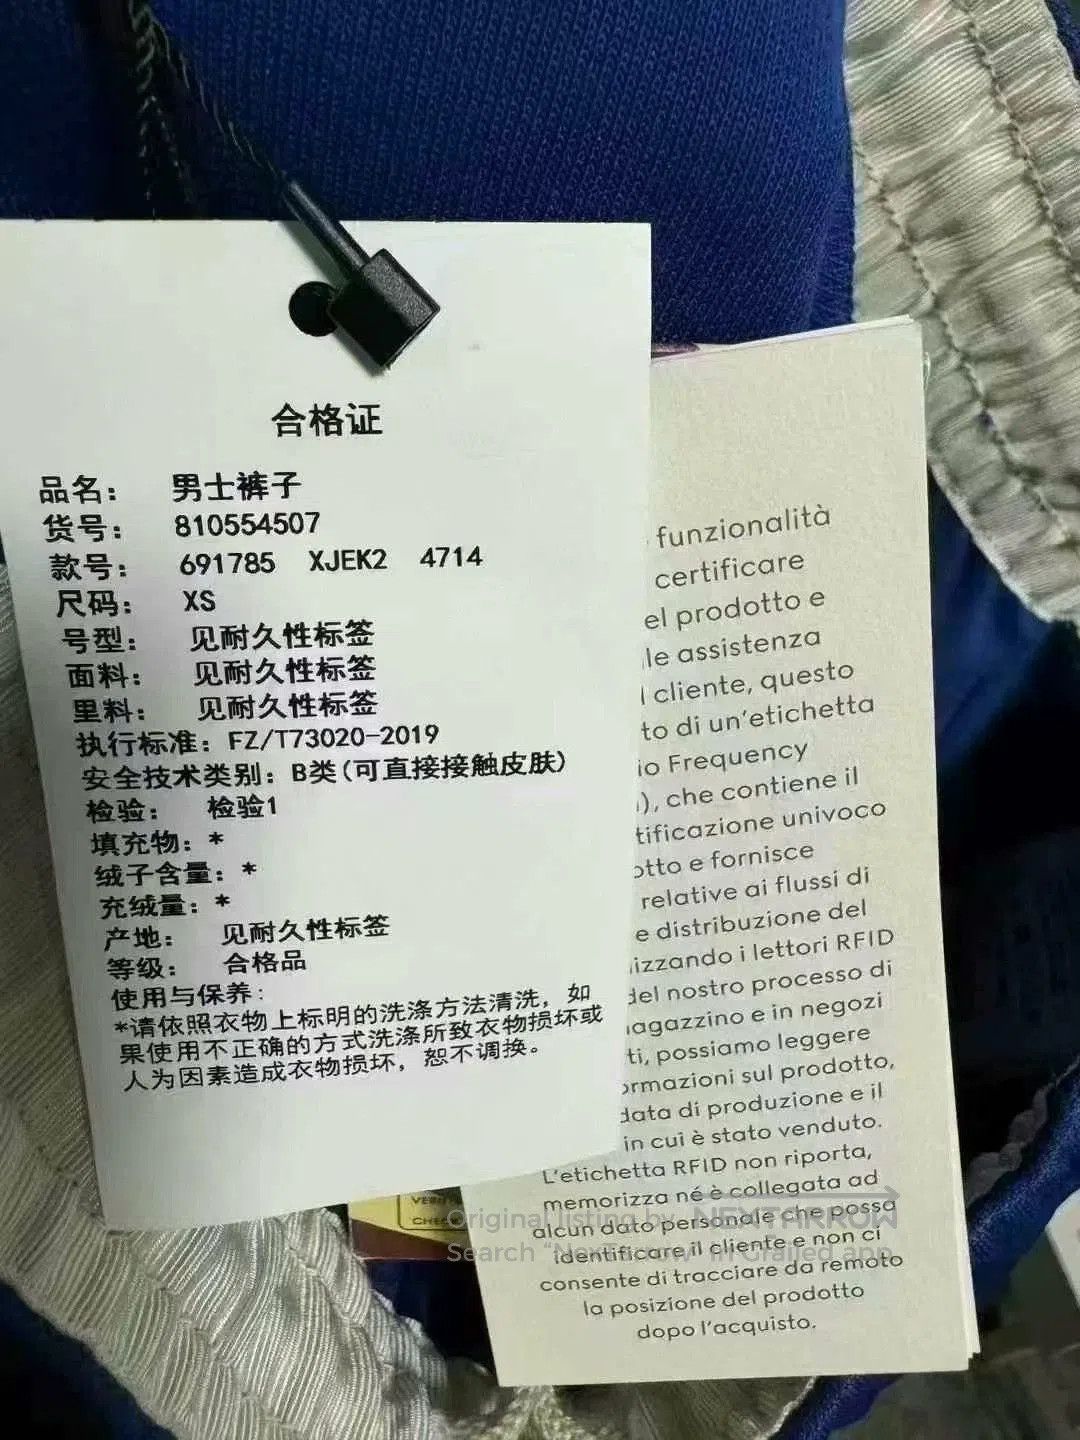 合格证
品名: 男士裤子
货号: 810554507
款号: 691785 XJEK2 4714
尺码: XS
号型: 见耐久性标签
面料: 见耐久性标签
里料: 见耐久性标签
执行标准: FZ/T73020-2019
安全技术类别: B类(可直接接触皮肤)
检验: 检验1
填充物: *
绒子含量: *
充绒量: *
产地: 见耐久性标签
等级: 合格品
使用与保养:
*请依照衣物上标明的洗涤方法清洗，如
果使用不正确的方式洗涤所致衣物损坏或
人为因素造成衣物损坏，恕不调换。
funzionalità
certificare
el prodotto e
le assistenza
l cliente, questo
to di un'etichetta
io Frequency
), che contiene il
tificazione univoco
otto e fornisce
relative ai flussi di
e distribuzione del
izzando i lettori RFID
del nostro processo di
agazzino e in negozi
ti, possiamo leggere
ormazioni sul prodotto,
data di produzione e il
in cui è stato venduto.
L'etichetta RFID non riporta,
memorizza né è collegata ad
alcun dato personale che possa
identificare il cliente e non ci
consente di tracciare da remoto
la posizione del prodotto
dopo l'acquisto.
CHEC
Original listing by NEXTARROW
Search "NextArrow" in Grailed app